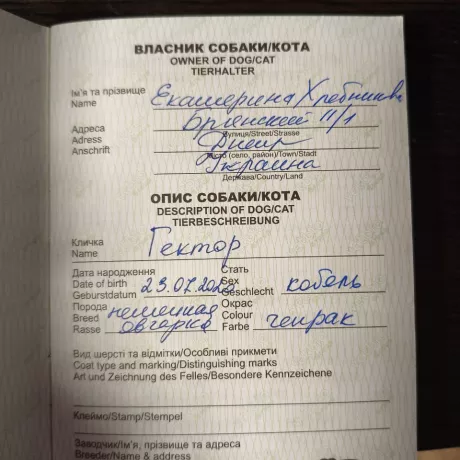 ВЛАСНИК СОБАКИ/КОТА
OWNER OF DOG/CAT
TIERHALTER
Ім'я та прізвище
Name
Екатерина Хребникова
Адреса
Adress
Anschrift
Брянский 11/1
Вулиця/Street/Strasse
Днепр
Місто (село, район)/Town/Stadt
Украина
Держава/Country/Land
ОПИС СОБАКИ/КОТА
DESCRIPTION OF DOG/CAT
TIERBESCHREIBUNG
Кличка
Name
Гектор
Дата народження
Date of birth
Geburtsdatum
23.07.202
Стать
Sex
Geschlecht
кобель
Порода
Breed
Rasse
немецкая
овчарка
Окрас
Colour
Farbe
чепрак
Вид шерсті та відмітки/Особливі прикмети
Coat type and marking/Distinguishing marks
Art und Zeichnung des Felles/Besondere Kennzeichene
Клеймо/Stamp/Stempel
Заводчик/Ім'я, прізвище та адреса
Breeder/Name & address